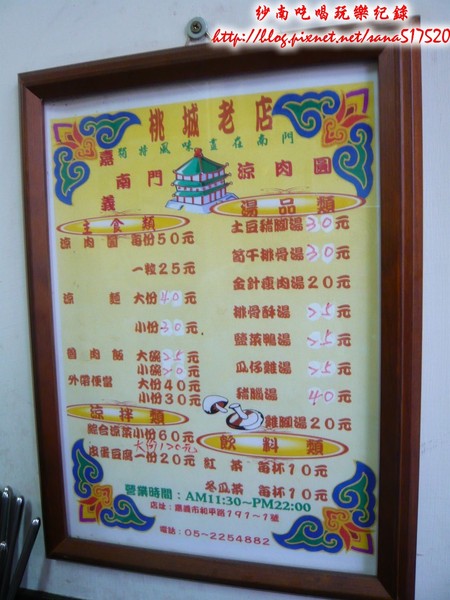 紗南吃喝玩樂紀錄
http://blog.pixnet.net/sana517520
桃城老店
獨特風味盡在南門
嘉義 南門 涼肉圓
主食類
涼肉圓 每份50元
一粒25元
涼麵 大份40元
小份30元
魯肉飯 大碗25元
小碗20元
外帶便當 大份40元
小份30元
涼拌類
綜合涼菜小份60元
大份120元
皮蛋豆腐一份20元
湯品類
土豆豬腳湯30元
筍干排骨湯30元
金針瘦肉湯20元
排骨酥湯25元
鹽菜鴨湯25元
瓜仔雞湯25元
豬腦湯40元
雞腳湯20元
飲料類
紅茶 每杯10元
冬瓜茶 每杯10元
營業時間：AM11:30~PM22:00
店址：嘉義市和平路191~1號
電話：05-2254882